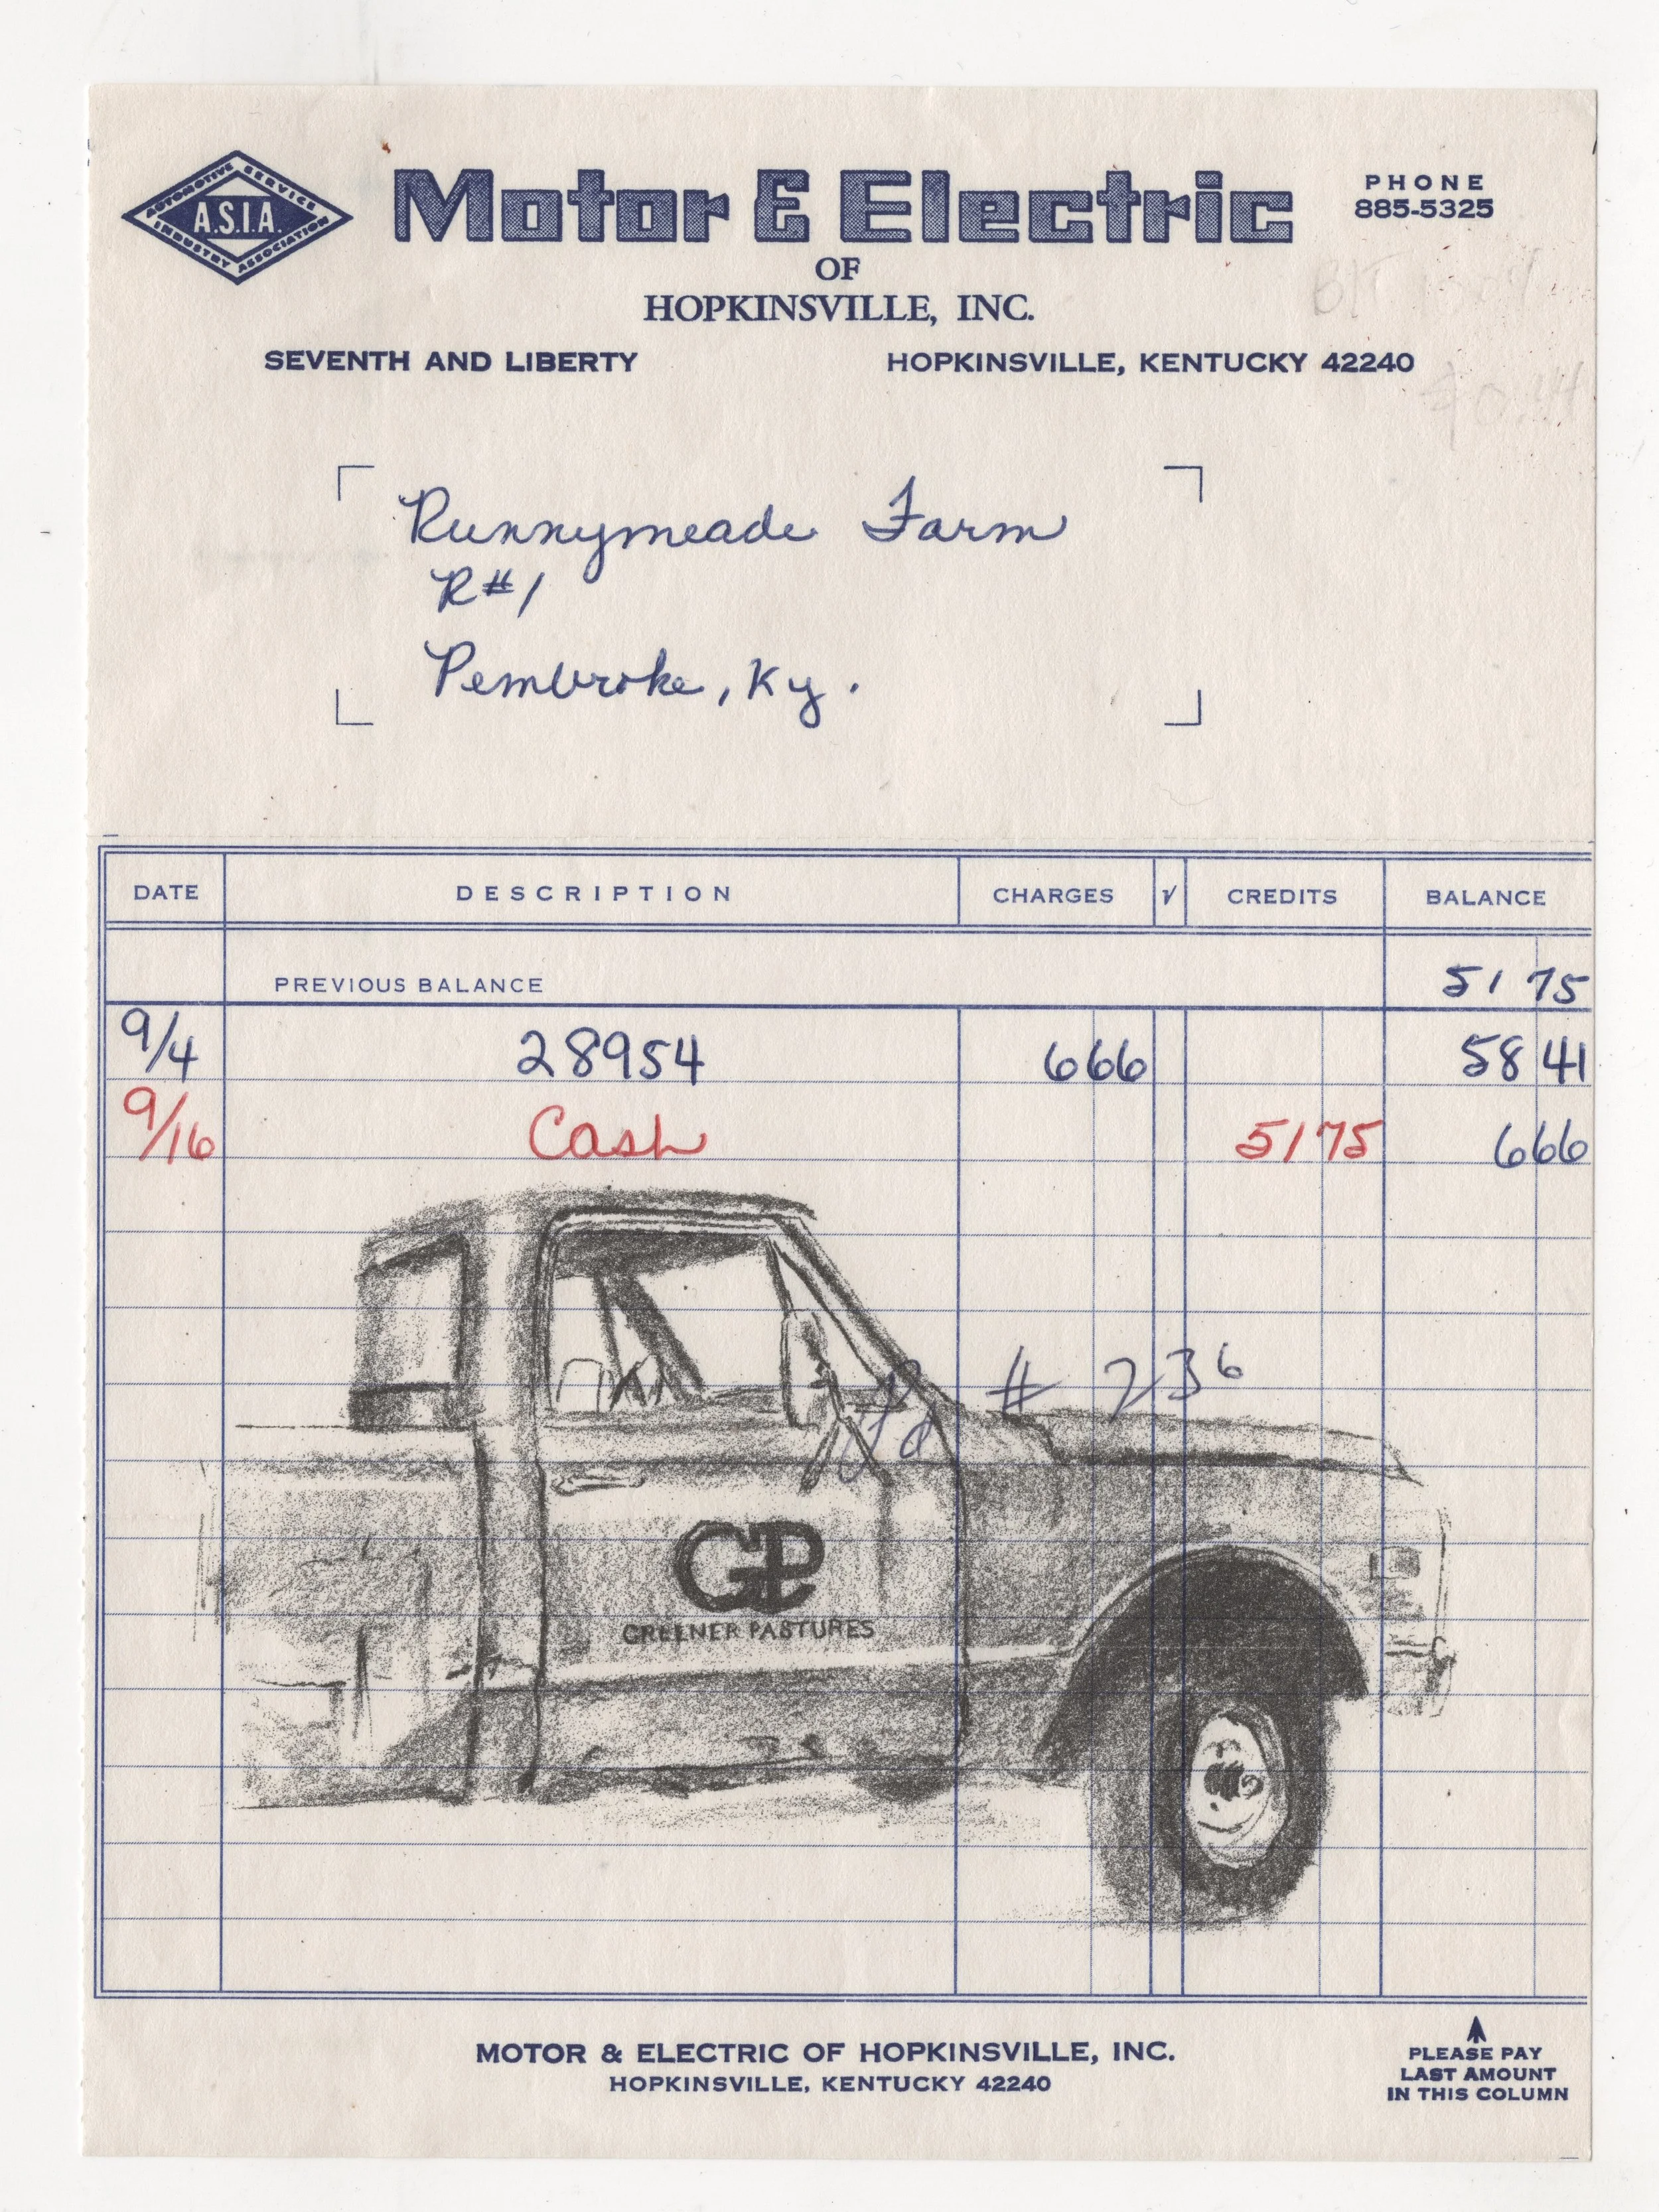 AUTOMOTIVE SERVICE
A.S.I.A.
INDUSTRY ASSOCIATION
Motor & Electric
PHONE
885-5325
OF
HOPKINSVILLE, INC.
SEVENTH AND LIBERTY HOPKINSVILLE, KENTUCKY 42240
Runnymeade Farm
R#1
Pembroke, Ky.
DATE DESCRIPTION CHARGES √ CREDITS BALANCE
PREVIOUS BALANCE 51 75
9/4 28954 6 66 58 41
9/16 Cash 51 75 6 66
# 236
GP
GREENER PASTURES
MOTOR & ELECTRIC OF HOPKINSVILLE, INC.
HOPKINSVILLE, KENTUCKY 42240
PLEASE PAY
LAST AMOUNT
IN THIS COLUMN